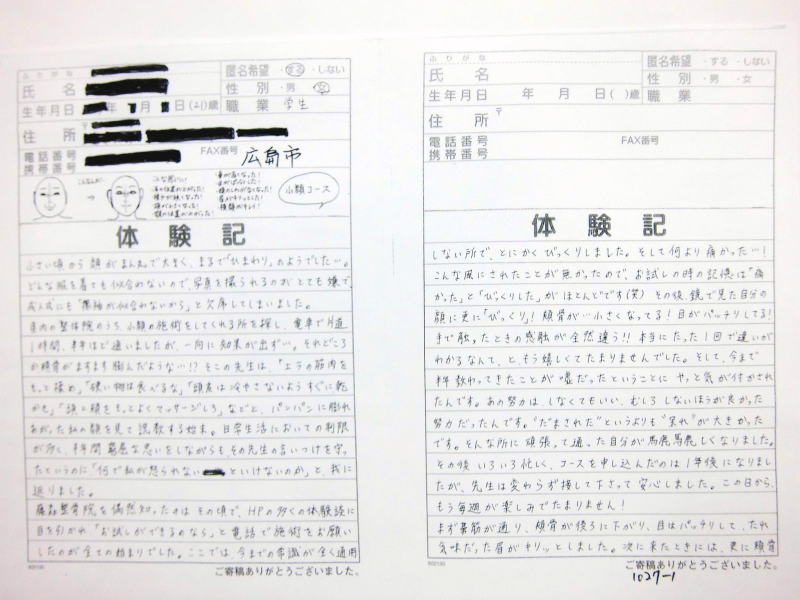 ふりがな
氏名
匿名希望 ・する ・しない
性別 ・男 ・女
生年月日 年 月 日(21)歳
職業 学生
住所
電話番号
携帯番号
FAX番号
広島市
こんなんが…
小顔コース
体験記
小さい頃から顔がまん丸で大きく、まるで「ひまわり」のようでした…。
どんな服を着ても似合わないので、写真を撮られるのがとても嫌で、
成人式にも「振袖が似合わないから」と欠席してしまいました。
県内の整体院のうち、小顔の施術をしてくれる所を探し、電車で片道
1時間、半年ほど通いましたが、一向に効果が出ず…。それどころ
か頬骨がますます膨んだような…!? そこの先生は、「エラの筋肉を
もっと揉め」「硬い物は食べるな」「頭皮は冷やさないようすぐに乾
かせ」「頭と頬をもっとよくマッサージしろ」などと、パンパンに膨れ
あがった私の顔を見て説教する始末。日常生活においての制限
が多く、半年間 窮屈な思いをしながらも、その先生の言いつけを守っ
たというのに「何で私が怒られない といけないのか」と、我に
返りました。
藤森整骨院を偶然知ったのは その頃で、HPの多くの体験談に
目を引かれ「お試しができるのなら」と電話で施術をお願い
したのが全ての始まりでした。ここでは、今までの常識が全く通用
ご寄稿ありがとうございました。
ふりがな
氏名
匿名希望 ・する ・しない
性別 ・男 ・女
生年月日 年 月 日( )歳
職業
住所 〒
電話番号
携帯番号
FAX番号
体験記
しない所で、とにかくびっくりしました。そして何より痛かった…!
こんな風にされたことが無かったので、お試しの時の記憶は「痛
かった」と「びっくりした」がほとんどです(笑) その後、鏡で見た自分の
顔に更に「びっくり」! 頬骨が…小さくなってる! 目がパッチリしてる!
まで触ったときの感触が全然違う!! 本当にたった1回で違いが
わかるなんて、と もう嬉しくてたまりませんでした。そして、今まで
半年教わってきたことが“嘘だった”ということに やっと気が付かされ
たんです。あの努力は しなくてもいい、むしろ しないほうが良かった
努力だったんです。“だまされた”というよりも“呆れ”が大きかった
です。そんな所に頑張って通った自分が馬鹿馬鹿しくなりました。
その後いろいろ忙しく、コースを申し込んだのは1年後になりまし
たが、先生は変わらず接して下さって安心しました。この日から、
もう毎週が楽しみでたまりません!
まず鼻筋が通り、頬骨が後ろに下がり、目はパッチリして、たれ
気味だった眉がキリッとしました。次に来たときには、更に頬骨
ご寄稿ありがとうございました。
1027-1